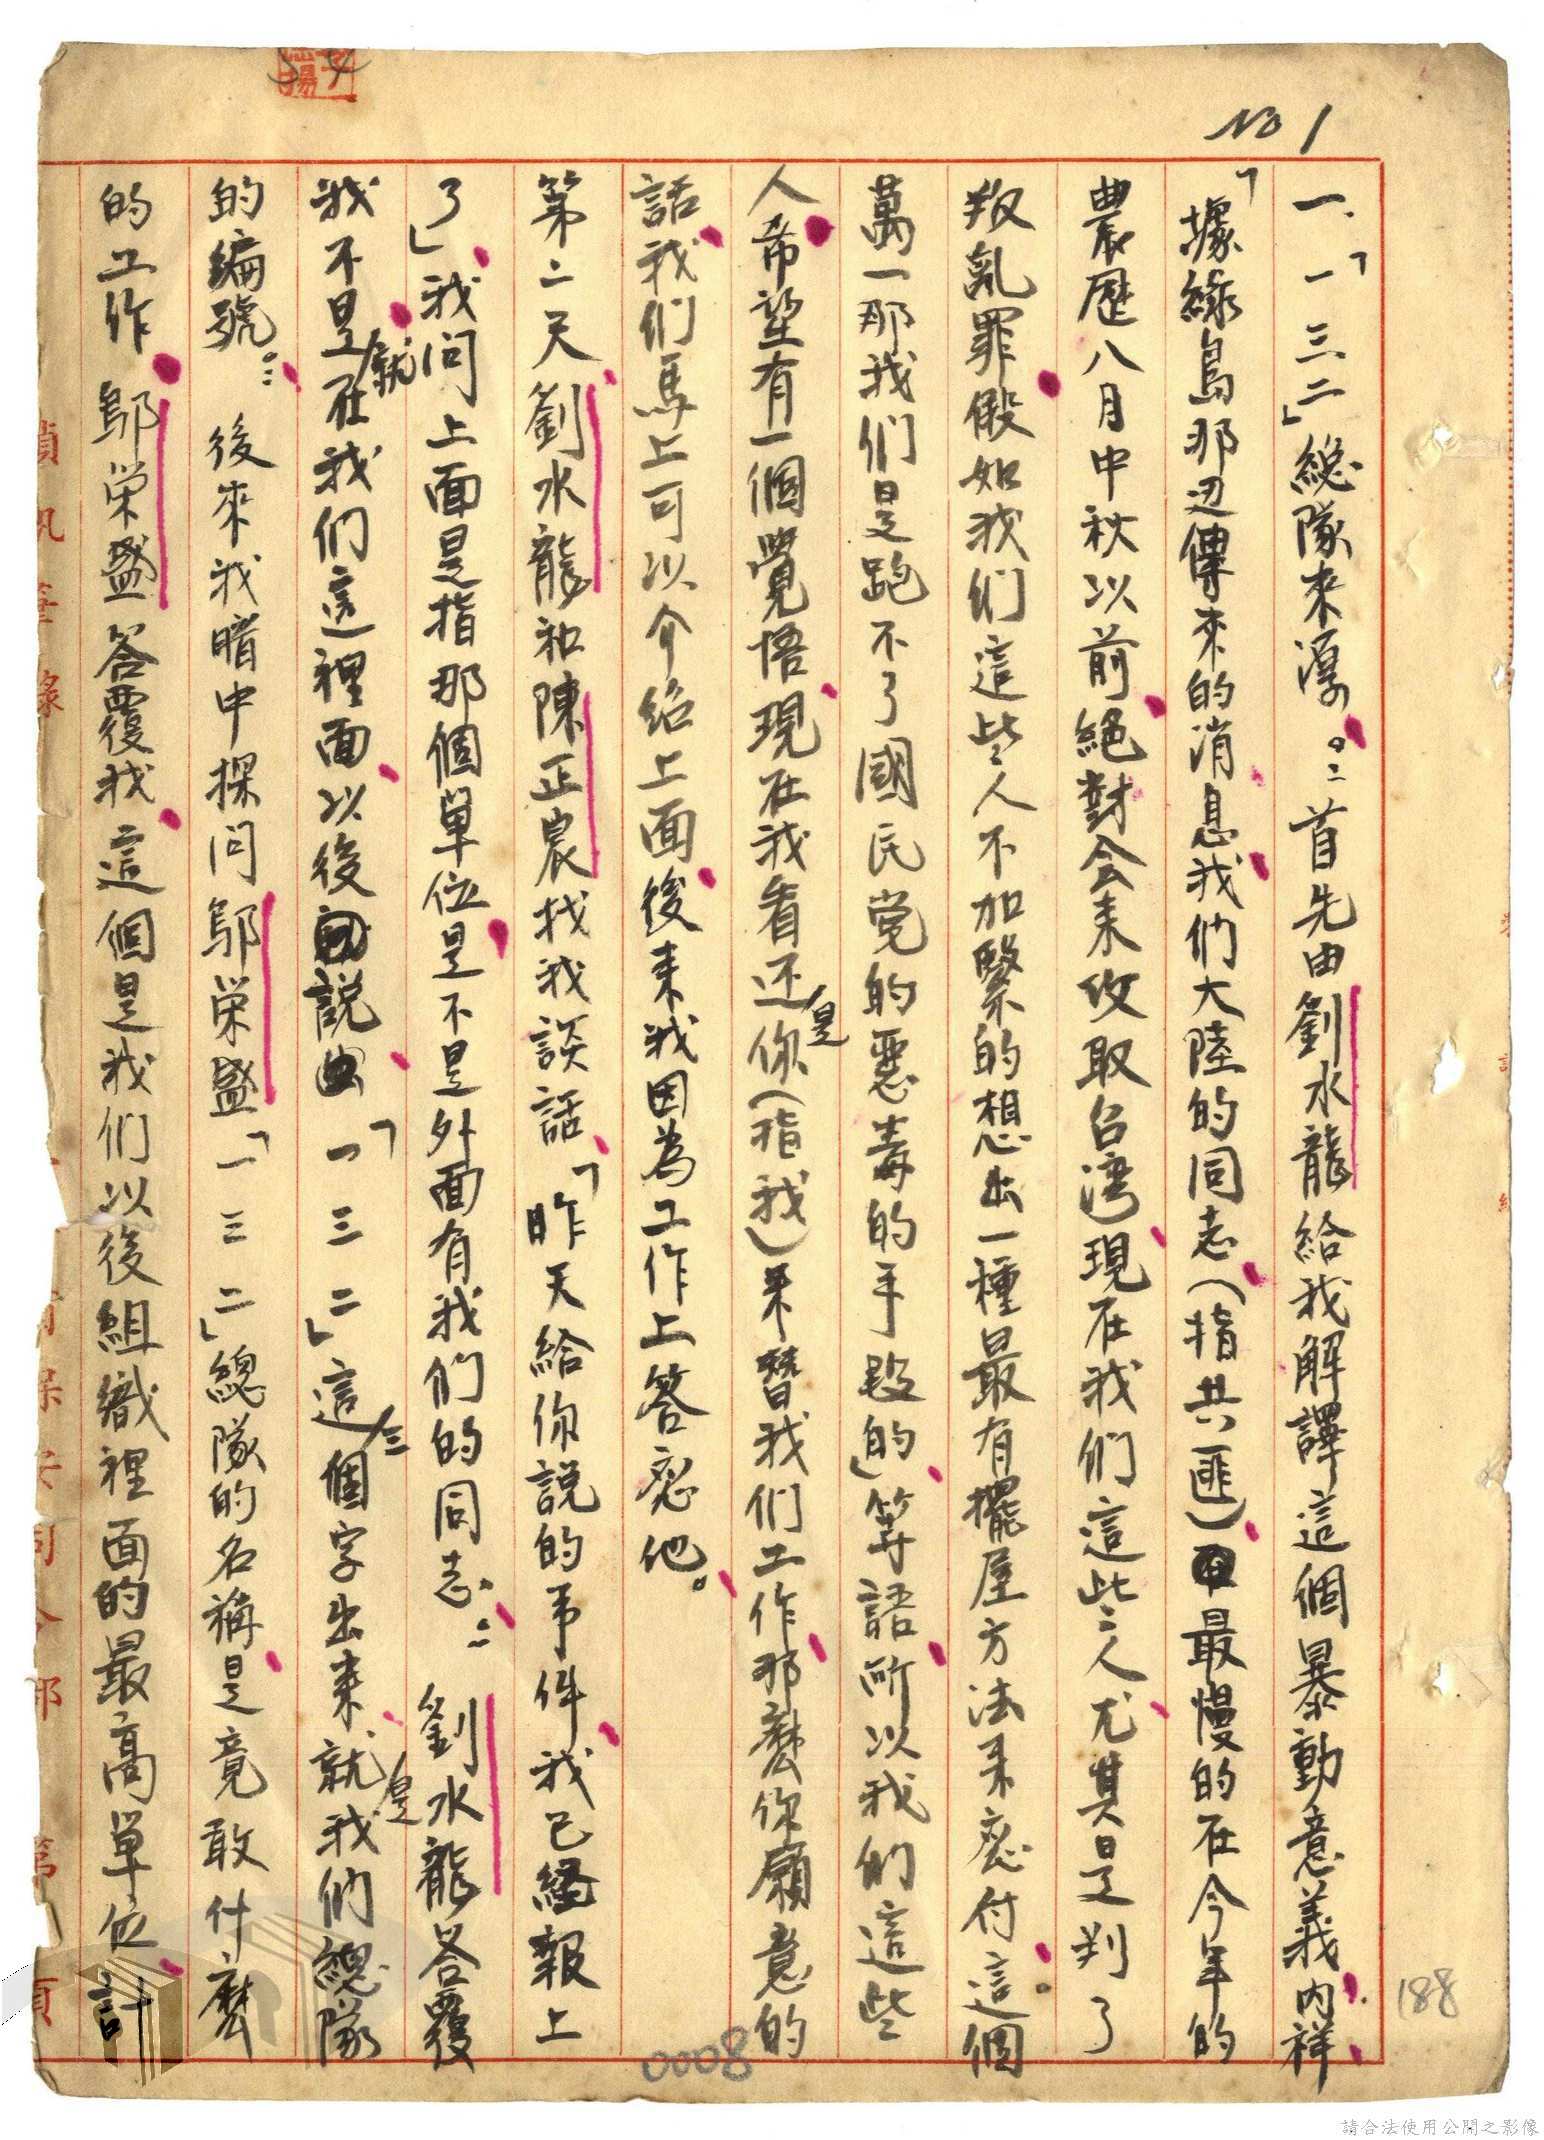 NO 1
一、「一三二」總隊來源。：首先由劉水龍給我解譯這個暴動意義內祥
「據綠島那边傳來的消息我们大陸的同志（指共匪）最慢的在今年的
農歷八月中秋以前絕對会来攻取台湾現在我们這些人尤其是判了
叛亂罪假如我们這些人不加緊的想出一種最有擺屋方法来應付這個。
萬一那我们是跑不了國民党的惡毒的手段的」等語所以我们這些
人希望有一個覺悟現在我看还是你（指我）来替我们工作那麽你願意的
話我们馬上可以介绍上面後来我因為工作上答應他。
第二天劉水龍和陳正宸找我談話「昨天給你説的事件我已經報上
了」我问上面是指那個單位是不是外面有我们的同志。：劉水龍答覆
我不是就在我们這裡面以後説出「一三二」這三個字出来就是我们總隊
的編號。：後來我暗中探问鄔荣盛「一三二」總隊的名稱是竟敢什麽
的工作鄔荣盛答覆我這個是我们以後組織裡面的最高單位計
188
0008
請合法使用公開之影像